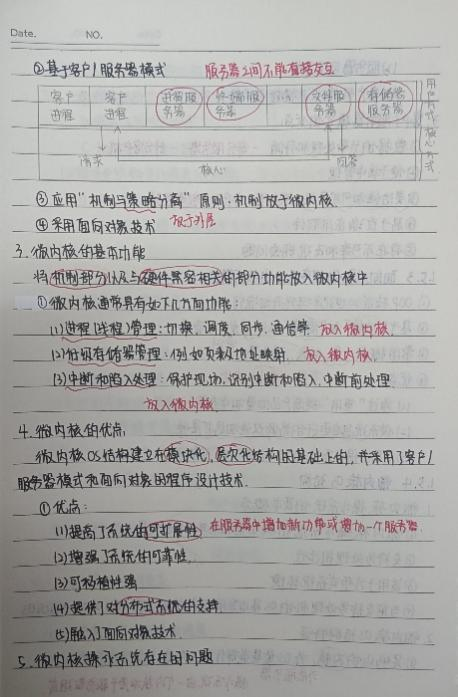 Date. NO.
②基于客户/服务器模式 服务器之间不能直接交互
客户 客户 进程服 终端服 文件服 存储器
进程 进程 务器 务器 务器 服务器
用户方式
核心方式
请求 核心 回答
③应用"机制与策略分离"原则.机制放于微内核.
④采用面向对象技术 放于外层
3.微内核的基本功能
将机制部分以及与硬件紧密相关的部分功能放入微内核中
①微内核通常具有如下几方面功能:
(1)进程(线程)管理:切换、调度、同步、通信等 放入微内核.
(2)低级存储器管理:例如页表及地址映射. 放入微内核.
(3)中断和陷入处理:保护现场,识别中断和陷入,中断前处理
放入微内核.
4.微内核的优点.
微内核OS结构建立在模块化、层次化结构的基础上的,并采用了客户/
服务器模式和面向对象的程序设计技术.
①优点:
(1)提高了系统的可扩展性 在服务器中增加新功能或增加一个服务器.
(2)增强了系统的可靠性.
(3)可移植性强
(4)提供了对分布式系统的支持.
(5)融入了面向对象技术.
5.微内核操作系统存在的问题